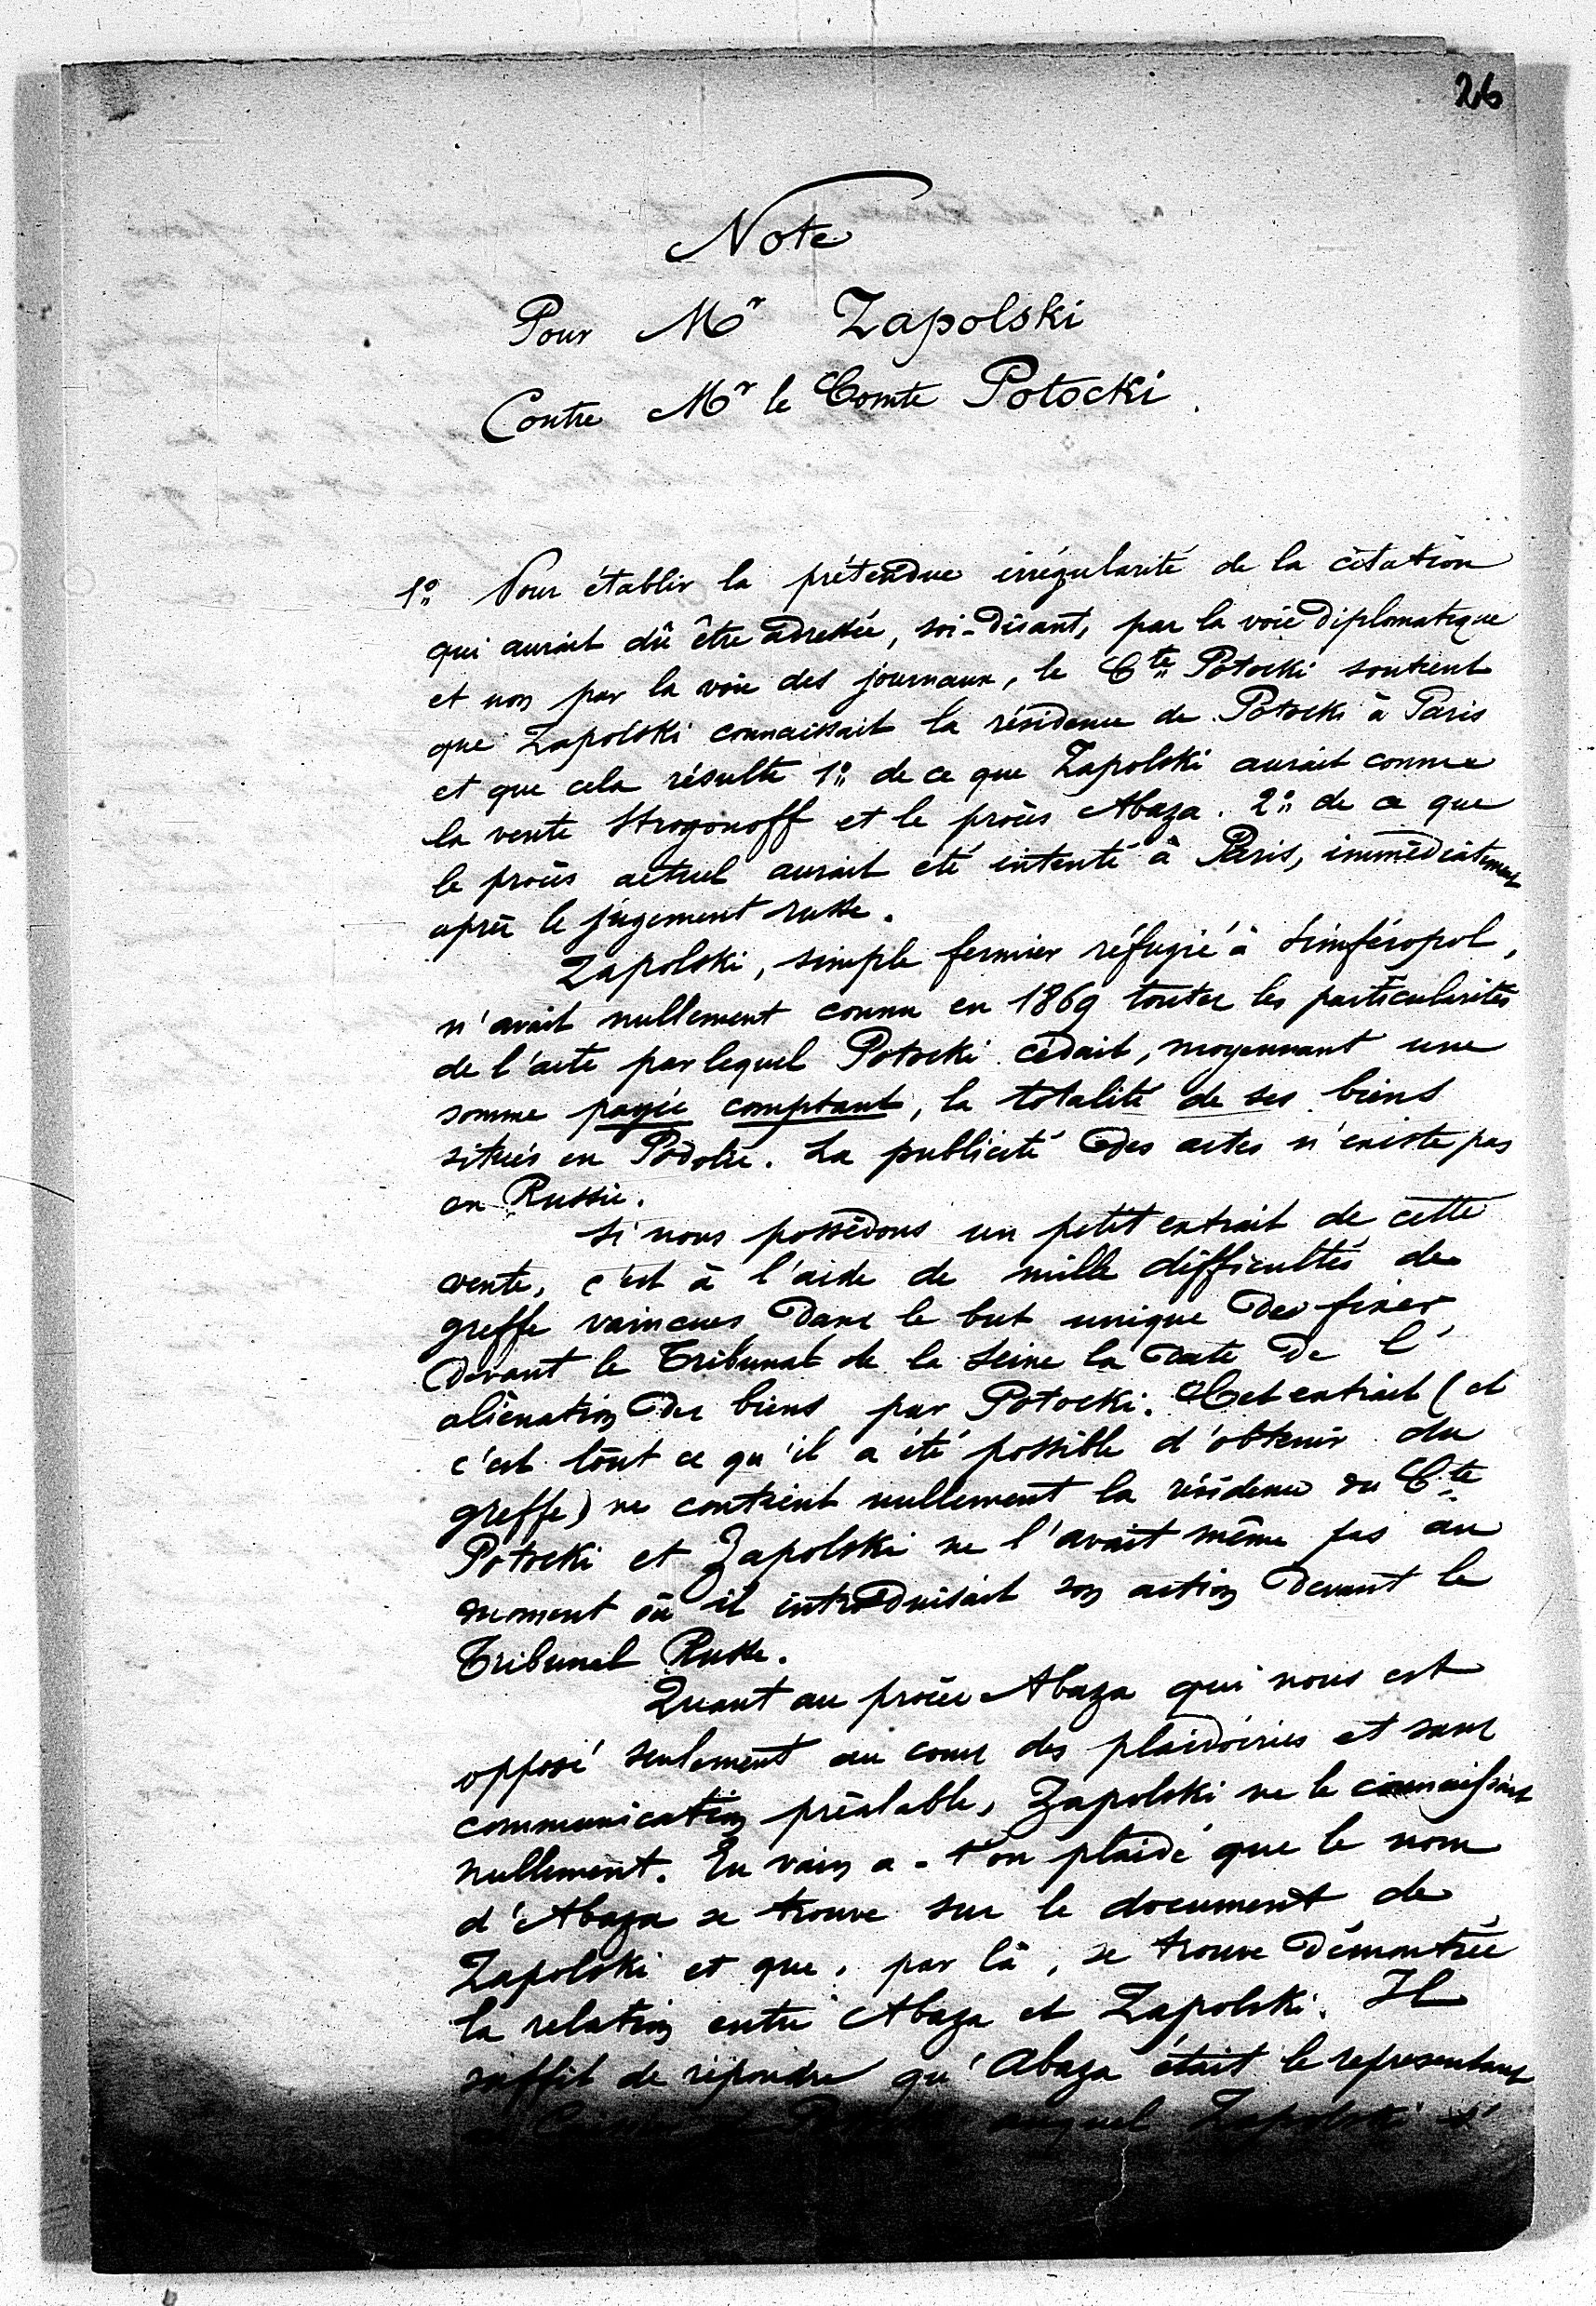 26
Note
Pour Mr Zapolski
Contre Mr le Comte Potocki.
1º Pour établir la prétendue irrégularité de la citation
qui aurait dû être adressée, soi-disant, par la voie diplomatique
et non par la voie des journaux, le Cte Potocki soutient
que Zapolski connaissait la résidence de Potocki à Paris
et que cela résulte 1º de ce que Zapolski aurait connu
la vente Strogonoff et le procès Abaza. 2º de ce que
le procès actuel aurait été intenté à Paris, immédiatement
après le jugement russe.
Zapolski, simple fermier réfugié à Simféropol,
n'avait nullement connu en 1869 toutes les particularités
de l'acte par lequel Potocki cédait, moyennant une
somme payée comptant, la totalité de ses biens
situés en Podolie. La publicité des actes n'existe pas
en Russie.
Si nous possédons un petit extrait de cette
vente, c'est à l'aide de mille difficultés de
greffe vaincues dans le but unique de fixer
devant le Tribunal de la Seine la date de l'
aliénation des biens par Potocki. Cet extrait (et
c'est tout ce qu'il a été possible d'obtenir du
greffe) ne contient nullement la résidence du Cte
Potocki et Zapolski ne l'avait même pas au
moment où il introduisait son action devant le
Tribunal Russe.
Quant au procès Abaza qui nous est
opposé seulement au cours des plaidoiries et sans
communication préalable, Zapolski ne le connaissait
nullement. En vain a-t'on plaidé que le nom
d'Abaza se trouve sur le document de
Zapolski et que, par là, se trouve démontrée
la relation entre Abaza et Zapolski. Il
suffit de répondre qu'Abaza était le représentant
Potocki auquel Zapolski s'